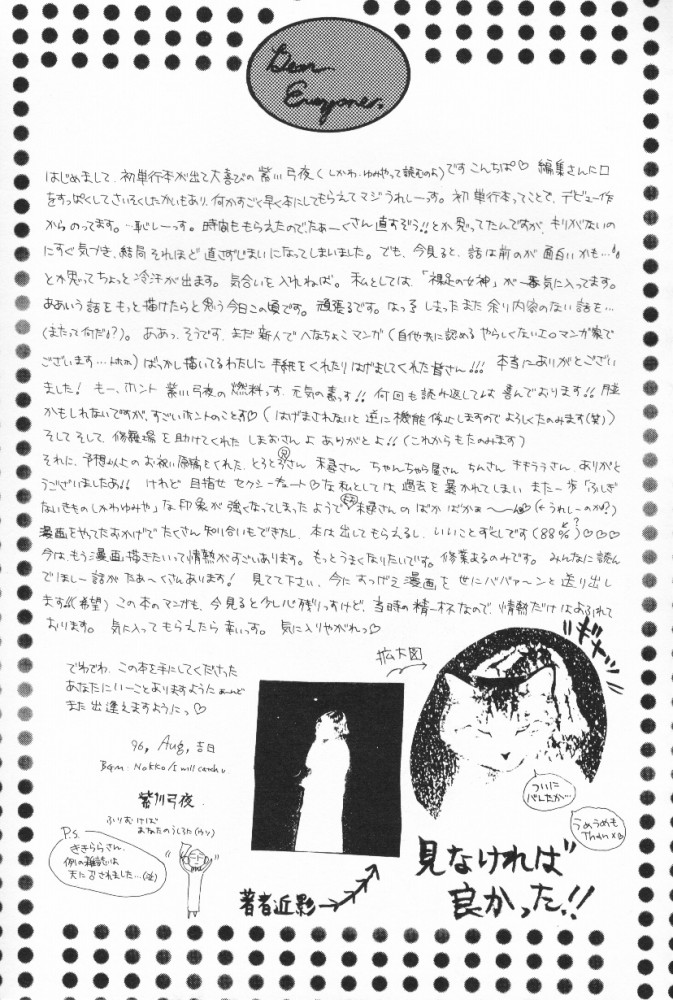 Dear
Everyone.
はじめまして、初単行本が出て大喜びの紫川弓夜(しかわ・ゆみやって読むのよ)です こんちぱ♡ 編集さんに口
をすっぱくしてさいそくしたかいもあり、何かすごく早く本にしてもらえてマジうれしーっす。初単行本ってことで、デビュー作
からのってます。…恥しーっす。時間ももらえたのでたぁ〜くさん直すぞう!!とか思ってたんですが、キリがないの
にすぐ気づき、結局それほど直さずじまいになってしまいました。でも、今見ると、話は前のが面白いかも…
とか思ってちょっと冷汗が出ます。気合いを入れねば。私としては、「裸足の女神」が一番気に入ってます。
ああいう話をもっと描けたらと思う今日この頃です。頑張るです。はっ しまったまた余り内容のない話を…
(またって何だ?)。ああっ、そうです、まだ新人でへなちょこマンガ(自他共に認めるやらしくないエロマンガ家で
ございます…トホホ)ばっかし描いてるわたしに手紙をくれたりはげましてくれた皆さん!!! 本当にありがとござい
ました! もー、ホント 紫川弓夜の燃料っす、元気の素っす!! 何回も読み返しては喜んでおります!!
かもしれないですが、すごいホントのことす♡(はげまされないと逆に機能停止しますのでよろしくたのみます(笑))
そしてそして、修羅場を助けてくれた しまおさんよ ありがとよ!!(これからもたのみます)
それに、予想以上のお祝い原稿をくれた、とろとろさん 未尋さん ちゃんちゃら屋さん ちんさん キキララさん、ありがと
うございましたあ!! けれど 目指せセクシーキュート♡な私としては過去を暴かれてしまい また一歩「ふしぎ
ないきもの しかわゆみや」な印象が強くなってしまったようで 未尋さんのばか ばかぁ〜ん♡(←うれしーのか?)
漫画をやってたおかげでたくさん知り合いもできたし、本は出してもらえるし、いいことずくしです(88%)♡♡♡
?
今はもう漫画描きたいって情熱がすごいあります。もっとうまくなりたいです。修業あるのみです。みんなに読ん
でほしー話がたぁ〜くさんあります! 見てて下さい、今にすっげえ漫画を世にババァーンと送り出し
ます!!(希望) この本のマンガも、今見ると少し心残りっすけど、当時の精一杯なので、情熱だけはあふれて
おります。気に入ってもらえたら幸いっす。気に入りやがれっ♡
でわでわ、この本を手にしてくださった
あなたにいーことありますように
また出逢えますようにっ♡
96, Aug, 吉日
BGM: NOKKO/I will catch u
紫川弓夜
ふりむけば
あなたのうしろに(ウソ)
P.S.
ききららさん、
例の雑誌は
天に召されました…(泣)
拡大図
ギャー
ついに
バレたか…
うめうめも
Thanx
著者近影
見なければ
良かった!!